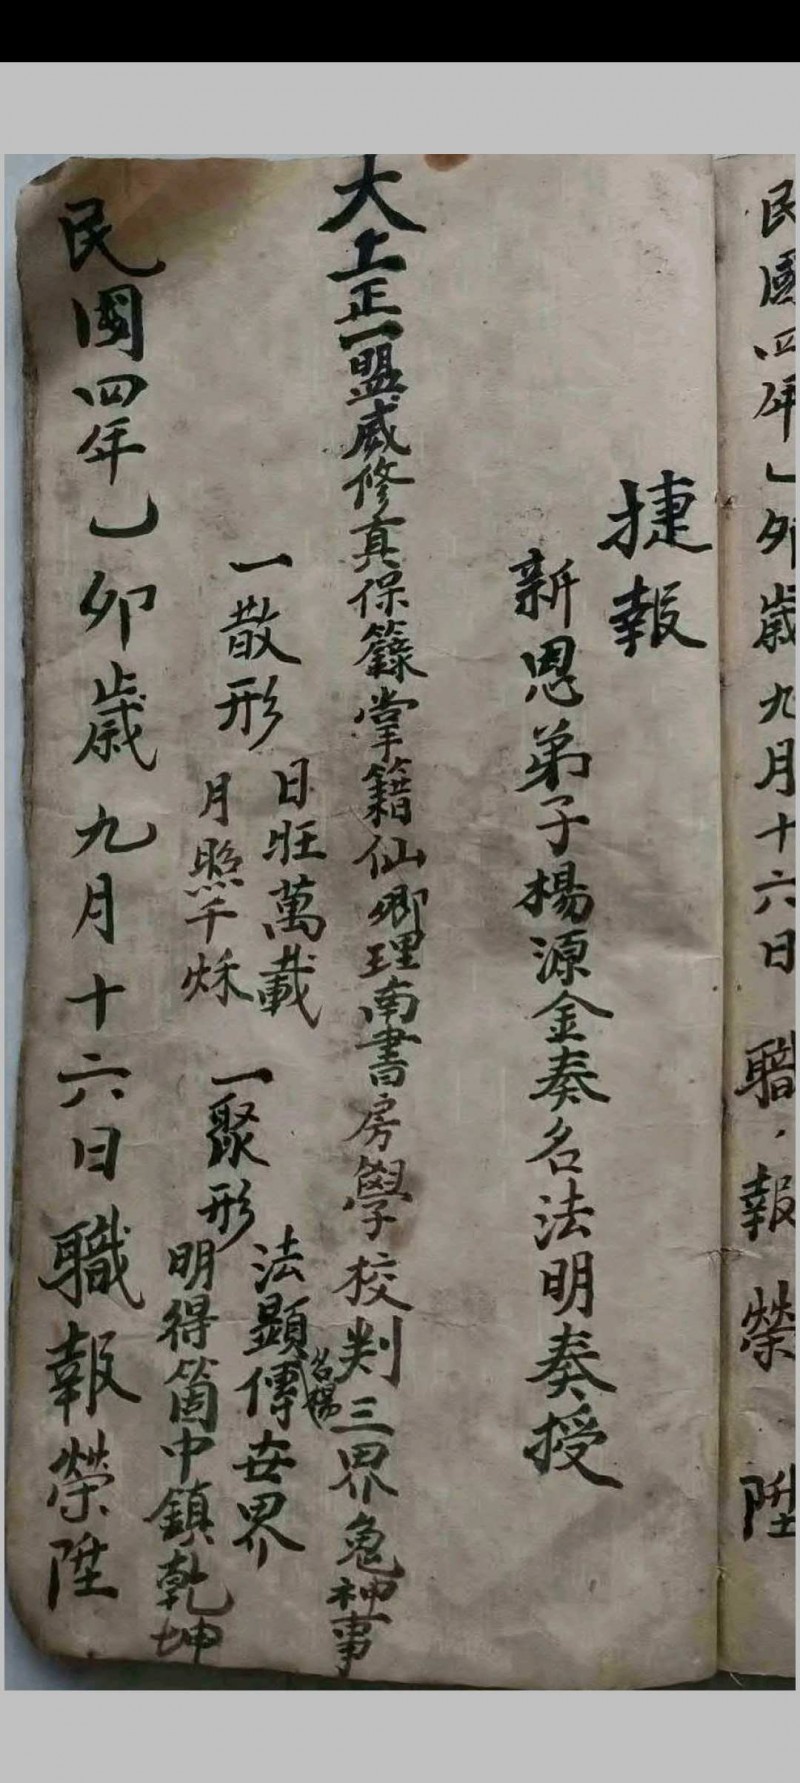 民國四年乙卯歲九月十六日職報榮陞
捷報
新恩弟子楊源金奏名法明奏授
大上正一盟威修真保籙掌籍仙卿理南書房學校判三界鬼神事
一散形
日旺萬載
月照千秌
一聚形
法顯傳世界
名揚
明得箇中鎮乾坤
民國四年乙卯歲九月十六日職報榮陞